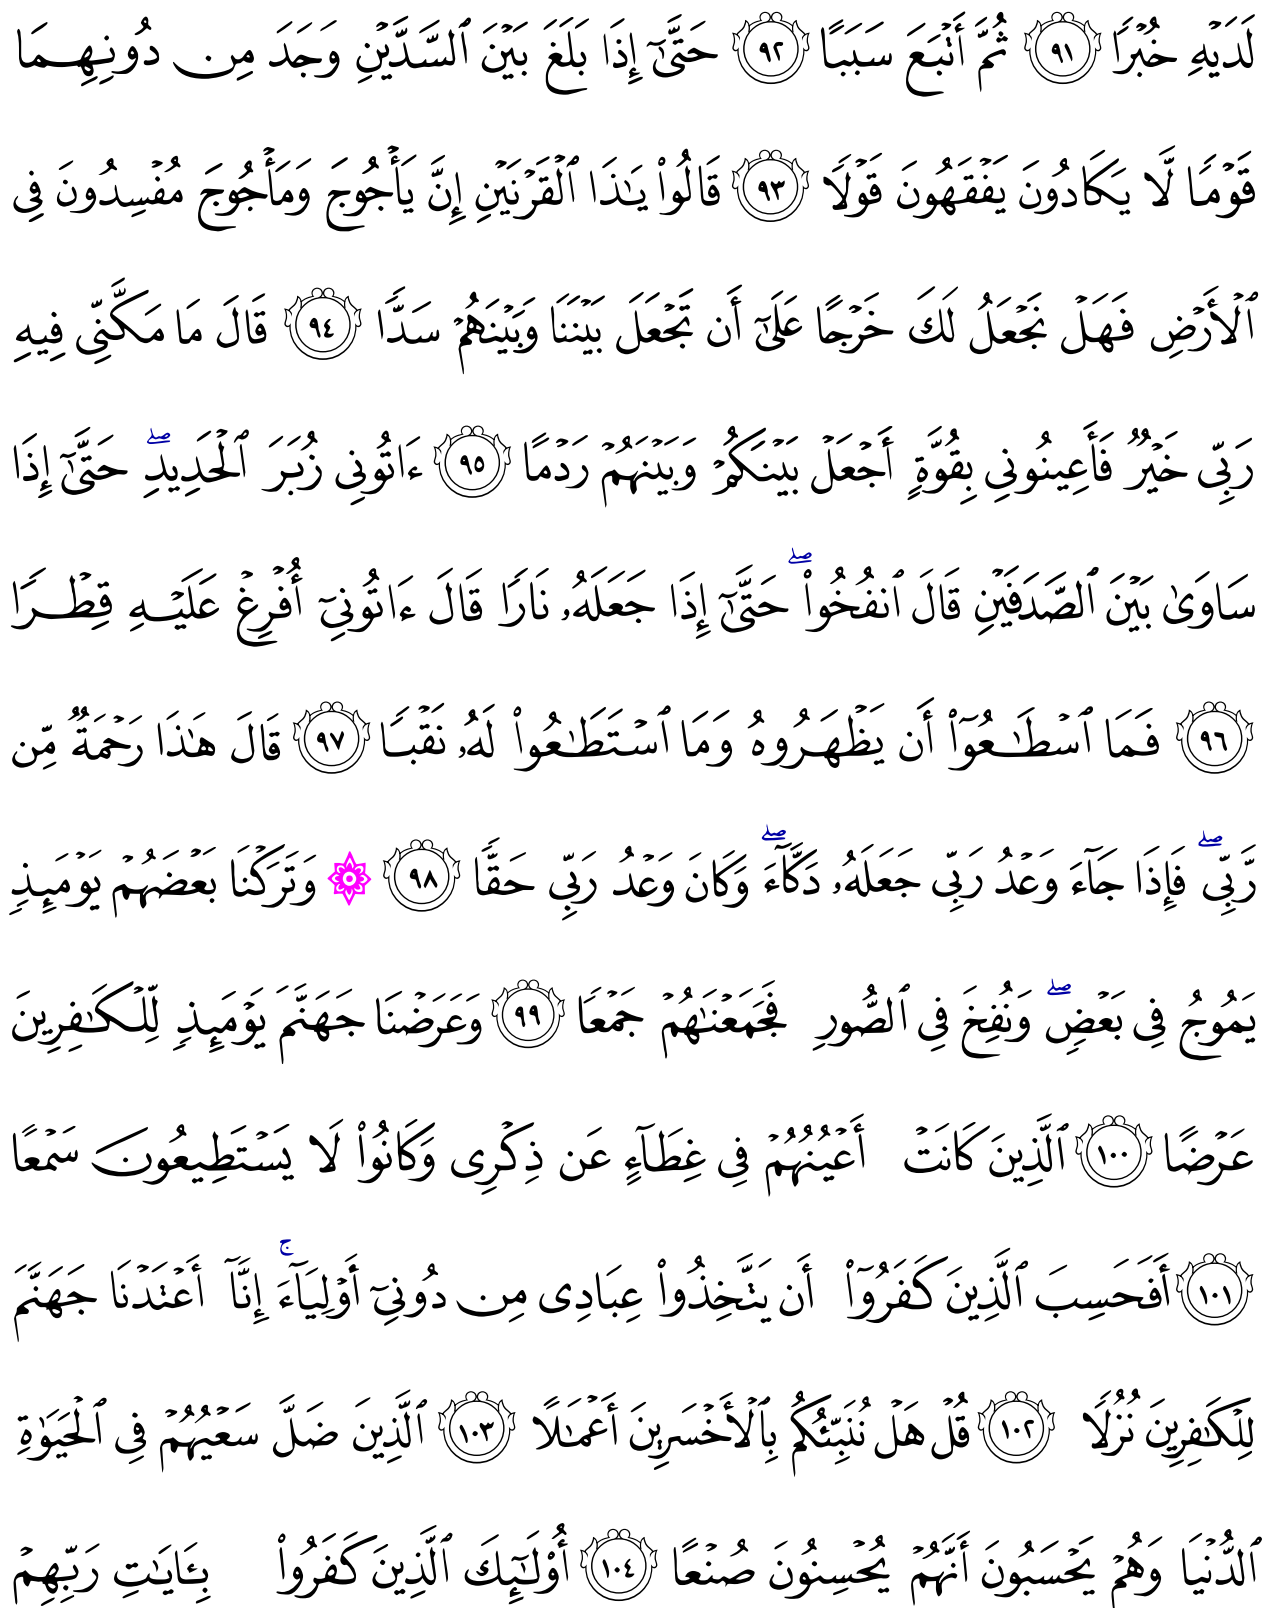 لَدَيْهِ خُبْرًا ٩١ ثُمَّ أَتْبَعَ سَبَبًا ٩٢ حَتَّىٰٓ إِذَا بَلَغَ بَيْنَ ٱلسَّدَّيْنِ وَجَدَ مِن دُونِهِمَا
قَوْمًا لَّا يَكَادُونَ يَفْقَهُونَ قَوْلًا ٩٣ قَالُوا۟ يَـٰذَا ٱلْقَرْنَيْنِ إِنَّ يَأْجُوجَ وَمَأْجُوجَ مُفْسِدُونَ فِى
ٱلْأَرْضِ فَهَلْ نَجْعَلُ لَكَ خَرْجًا عَلَىٰٓ أَن تَجْعَلَ بَيْنَنَا وَبَيْنَهُمْ سَدًّا ٩٤ قَالَ مَا مَكَّنِّى فِيهِ
رَبِّى خَيْرٌ فَأَعِينُونِى بِقُوَّةٍ أَجْعَلْ بَيْنَكُمْ وَبَيْنَهُمْ رَدْمًا ٩٥ ءَاتُونِى زُبَرَ ٱلْحَدِيدِ ۖ حَتَّىٰٓ إِذَا
سَاوَىٰ بَيْنَ ٱلصَّدَفَيْنِ قَالَ ٱنفُخُوا۟ ۖ حَتَّىٰٓ إِذَا جَعَلَهُۥ نَارًا قَالَ ءَاتُونِىٓ أُفْرِغْ عَلَيْهِ قِطْرًا
٩٦ فَمَا ٱسْطَـٰعُوٓا۟ أَن يَظْهَرُوهُ وَمَا ٱسْتَطَـٰعُوا۟ لَهُۥ نَقْبًا ٩٧ قَالَ هَـٰذَا رَحْمَةٌ مِّن
رَّبِّى ۖ فَإِذَا جَآءَ وَعْدُ رَبِّى جَعَلَهُۥ دَكَّآءَ ۖ وَكَانَ وَعْدُ رَبِّى حَقًّا ٩٨ ۞ وَتَرَكْنَا بَعْضَهُمْ يَوْمَئِذٍ
يَمُوجُ فِى بَعْضٍ ۖ وَنُفِخَ فِى ٱلصُّورِ فَجَمَعْنَـٰهُمْ جَمْعًا ٩٩ وَعَرَضْنَا جَهَنَّمَ يَوْمَئِذٍ لِّلْكَـٰفِرِينَ
عَرْضًا ١٠٠ ٱلَّذِينَ كَانَتْ أَعْيُنُهُمْ فِى غِطَآءٍ عَن ذِكْرِى وَكَانُوا۟ لَا يَسْتَطِيعُونَ سَمْعًا
١٠١ أَفَحَسِبَ ٱلَّذِينَ كَفَرُوٓا۟ أَن يَتَّخِذُوا۟ عِبَادِى مِن دُونِىٓ أَوْلِيَآءَ ۚ إِنَّآ أَعْتَدْنَا جَهَنَّمَ
لِلْكَـٰفِرِينَ نُزُلًا ١٠٢ قُلْ هَلْ نُنَبِّئُكُم بِٱلْأَخْسَرِينَ أَعْمَـٰلًا ١٠٣ ٱلَّذِينَ ضَلَّ سَعْيُهُمْ فِى ٱلْحَيَوٰةِ
ٱلدُّنْيَا وَهُمْ يَحْسَبُونَ أَنَّهُمْ يُحْسِنُونَ صُنْعًا ١٠٤ أُو۟لَـٰٓئِكَ ٱلَّذِينَ كَفَرُوا۟ بِـَٔايَـٰتِ رَبِّهِمْ